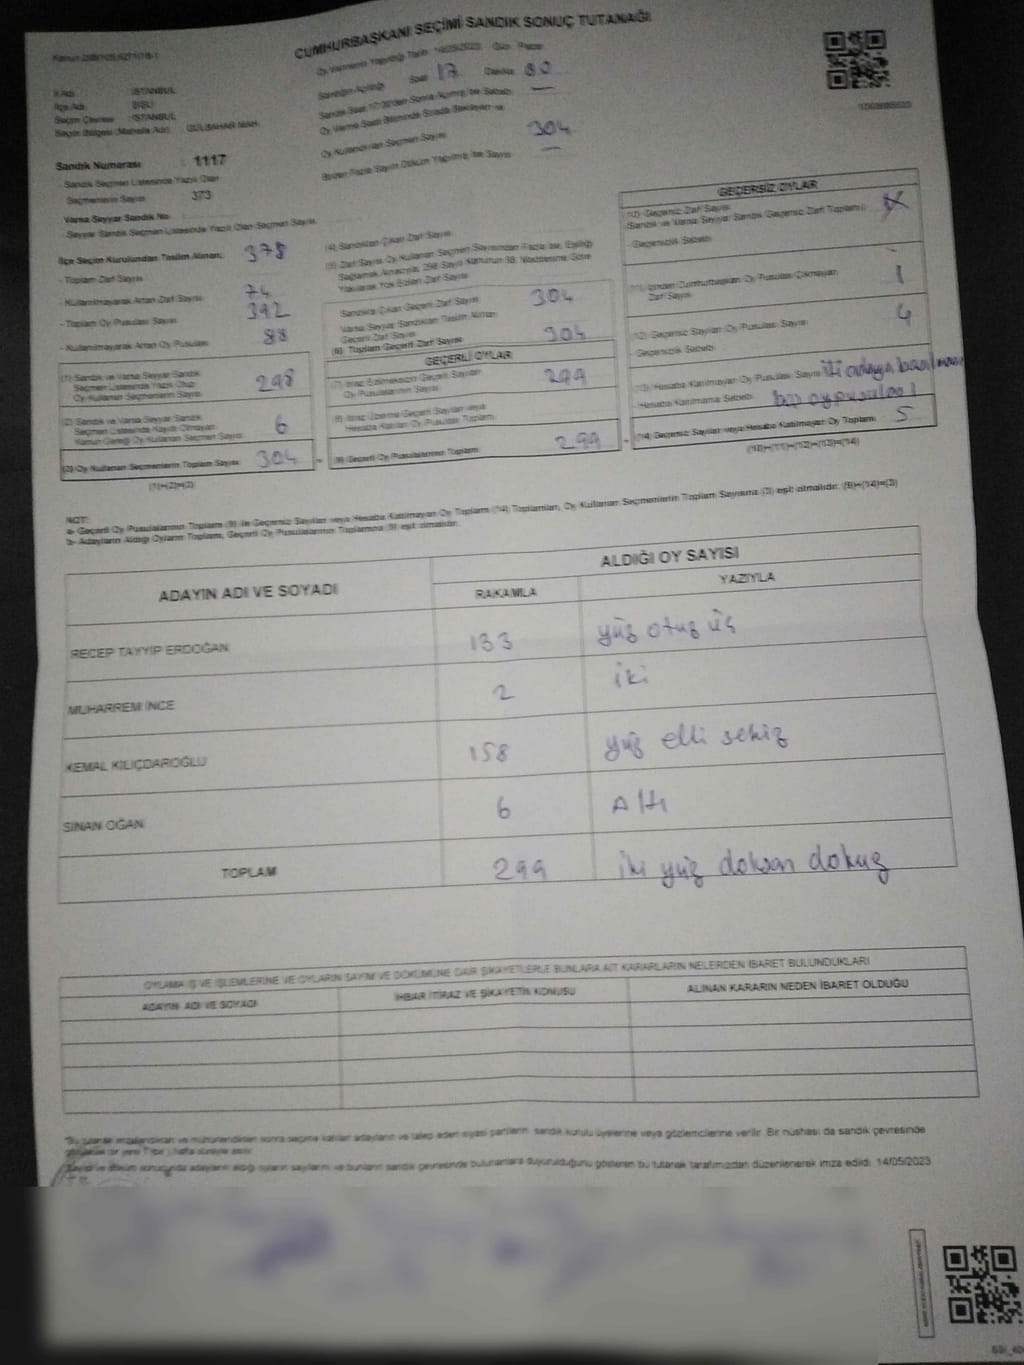 CUMHURBAŞKANI SEÇİMİ SANDIK SONUÇ TUTANAĞI
Oy Vermenin Yapıldığı Tarih : 14/05/2023 Gün : Pazar
İl Adı : İSTANBUL
Sandığın Açıldığı Saat 17 Dakika 30
İlçe Adı : ŞİŞLİ
Sandık Saat 17:00'den Sonra Açılmış İse Sebebi —
Seçim Çevresi : İSTANBUL
Oy Verme Saati Bitiminde Sırada Bekleyen ve
Seçim Bölgesi (Mahalle Adı) : GÜLBAHAR MAH.
Oy Kullandırılan Seçmen Sayısı 304
Birden Fazla Sayım Döküm Yapılmış İse Sayısı —
Sandık Numarası : 1117
- Sandık Seçmen Listesinde Yazılı Olan
Seçmenlerin Sayısı : 373
Varsa Seyyar Sandık No
- Seyyar Sandık Seçmen Listesinde Yazılı Olan Seçmen Sayısı
İlçe Seçim Kurulundan Teslim Alınan; 378
- Toplam Zarf Sayısı
- Kullanılmayarak Artan Zarf Sayısı 74
- Toplam Oy Pusulası Sayısı 392
- Kullanılmayarak Artan Oy Pusulası 88
(1) Sandık ve Varsa Seyyar Sandık
Seçmen Listesinde Yazılı Olup
Oy Kullanan Seçmenlerin Sayısı 298
(2) Sandık ve Varsa Seyyar Sandık
Seçmen Listesinde Kayıtlı Olmayan
Kanun Gereği Oy Kullanan Seçmen Sayısı 6
(3) Oy Kullanan Seçmenlerin Toplam Sayısı 304
(1)+(2)=(3)
(4) Sandıktan Çıkan Zarf Sayısı
(5) Zarf Sayısı Oy Kullanan Seçmen Sayısından Fazla ise, Eşitliği
Sağlamak Amacıyla, 298 Sayılı Kanunun 98. Maddesine Göre
Yakılarak Yok Edilen Zarf Sayısı
Sandıkta Çıkan Geçerli Zarf Sayısı 304
Varsa Seyyar Sandıktan Teslim Alınan
Geçerli Zarf Sayısı
(6) Toplam Geçerli Zarf Sayısı 304
GEÇERLİ OYLAR
(7) İtiraz Edilmeksizin Geçerli Sayılan
Oy Pusulalarının Sayısı 299
(8) İtiraz Üzerine Geçerli Sayılan veya
Hesaba Katılan Oy Pusulası Toplamı
(9) Geçerli Oy Pusulalarının Toplamı 299
GEÇERSİZ OYLAR
(10) Geçersiz Zarf Sayısı
(Sandık ve Varsa Seyyar Sandık Geçersiz Zarf Toplamı)
- Geçersizlik Sebebi
(11) İçinden Cumhurbaşkanı Oy Pusulası Çıkmayan
Zarf Sayısı 1
(12) Geçersiz Sayılan Oy Pusulası Sayısı 4
- Geçersizlik Sebebi
(13) Hesaba Katılmayan Oy Pusulası Sayısı iki adaya basılması
- Hesaba Katılmama Sebebi boş oy pusulası 1
(14) Geçersiz Sayılan veya Hesaba Katılmayan Oy Toplamı 5
(10)+(11)+(12)+(13)=(14)
NOT:
a- Geçerli Oy Pusulalarının Toplamı (9) ile Geçersiz Sayılan veya Hesaba Katılmayan Oy Toplamı (14) Toplamları, Oy Kullanan Seçmenlerin Toplam Sayısına (3) eşit olmalıdır. (9)+(14)=(3)
b- Adayların Aldığı Oyların Toplamı, Geçerli Oy Pusulalarının Toplamına (9) eşit olmalıdır.
ADAYIN ADI VE SOYADI
ALDIĞI OY SAYISI
RAKAMLA
YAZIYLA
RECEP TAYYİP ERDOĞAN 133 yüz otuz üç
MUHARREM İNCE 2 iki
KEMAL KILIÇDAROĞLU 158 yüz elli sekiz
SİNAN OĞAN 6 Altı
TOPLAM 299 iki yüz doksan dokuz
OYLAMA İŞ VE İŞLEMLERİNE VE OYLARIN SAYIM VE DÖKÜMÜNE DAİR ŞİKAYETLERLE BUNLARA AİT KARARLARIN NELERDEN İBARET BULUNDUKLARI
ADAYIN ADI VE SOYADI
İHBAR İTİRAZ VE ŞİKAYETİN KONUSU
ALINAN KARARIN NEDEN İBARET OLDUĞU
*Bu tutanak imzalandıktan ve mühürlendikten sonra seçime katılan adayların ve talep eden siyasi partilerin, sandık kurulu üyelerine veya gözlemcilerine verilir. Bir nüshası da sandık çevresinde
bir yere 1 (bir) hafta süreyle asılır.
Sayım ve döküm sonucunda adayların aldığı oyların sayılarını ve bunların sandık çevresinde bulunanlara duyurulduğunu gösteren bu tutanak tarafımızdan düzenlenerek imza edildi. 14/05/2023